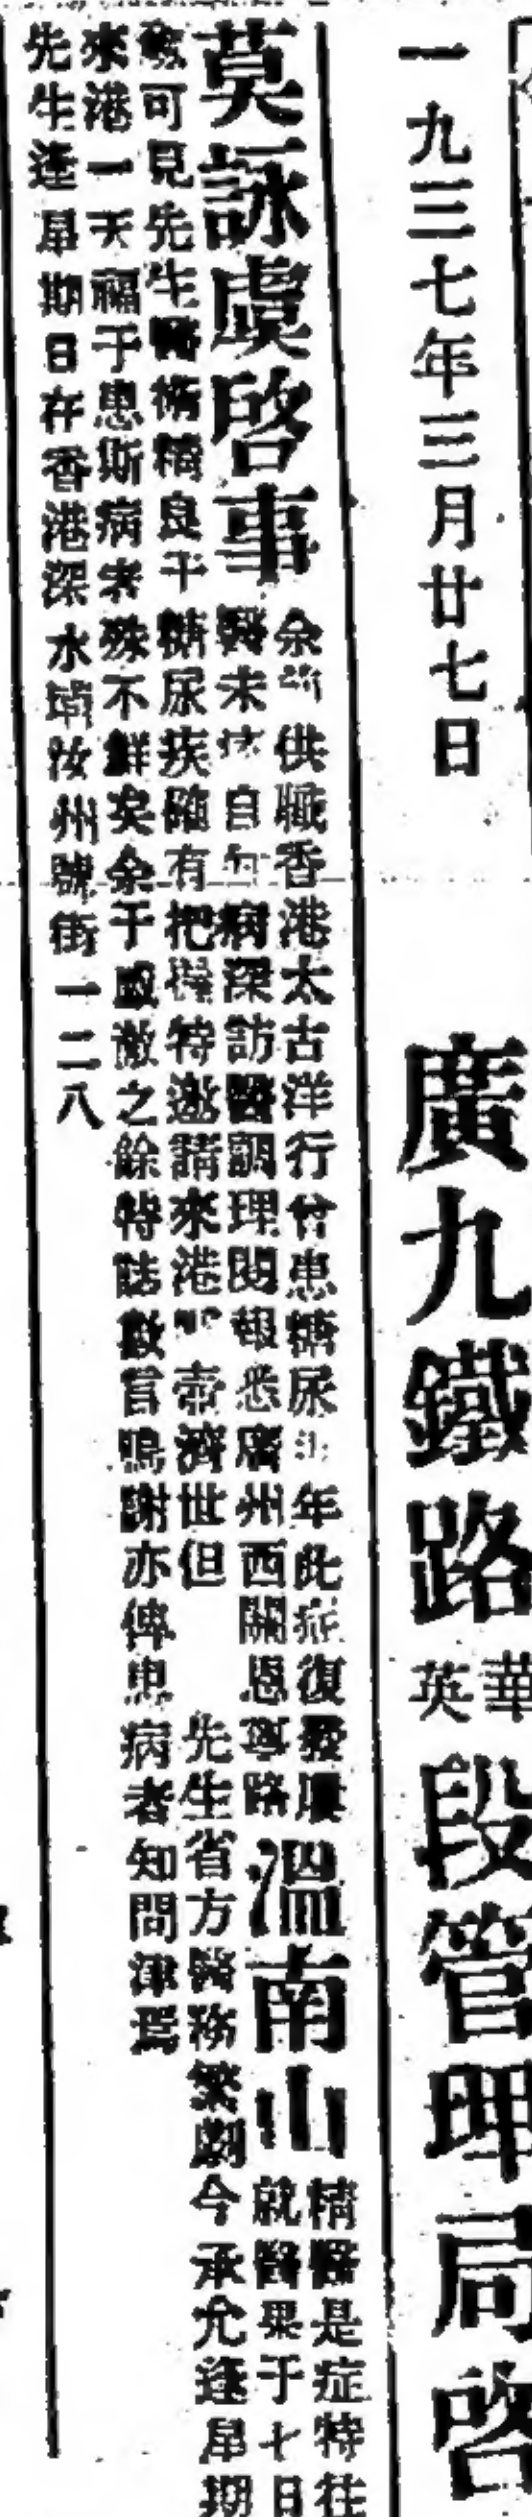 一九三七年三月廿七日
廣九鐵路華英段管理局啓
莫詠虞啓事
余前供職香港太古洋行曾患糖尿年此症復發屢
醫未自病深訪醫調理閱報悉廣州西關恩寧路
溫南山
精醫是症特往
就醫果于七日
愈可見先生醫術精良平糖尿疾確有把握特邀請來港壺濟世但 先生省方醫務繁劇今承允逢星期
來港一天福于患斯病者殊不鮮矣余于感激之餘特誌數言鳴謝亦俾患病者知問津焉
先生逢星期日在香港深水埔汝州號街一二八